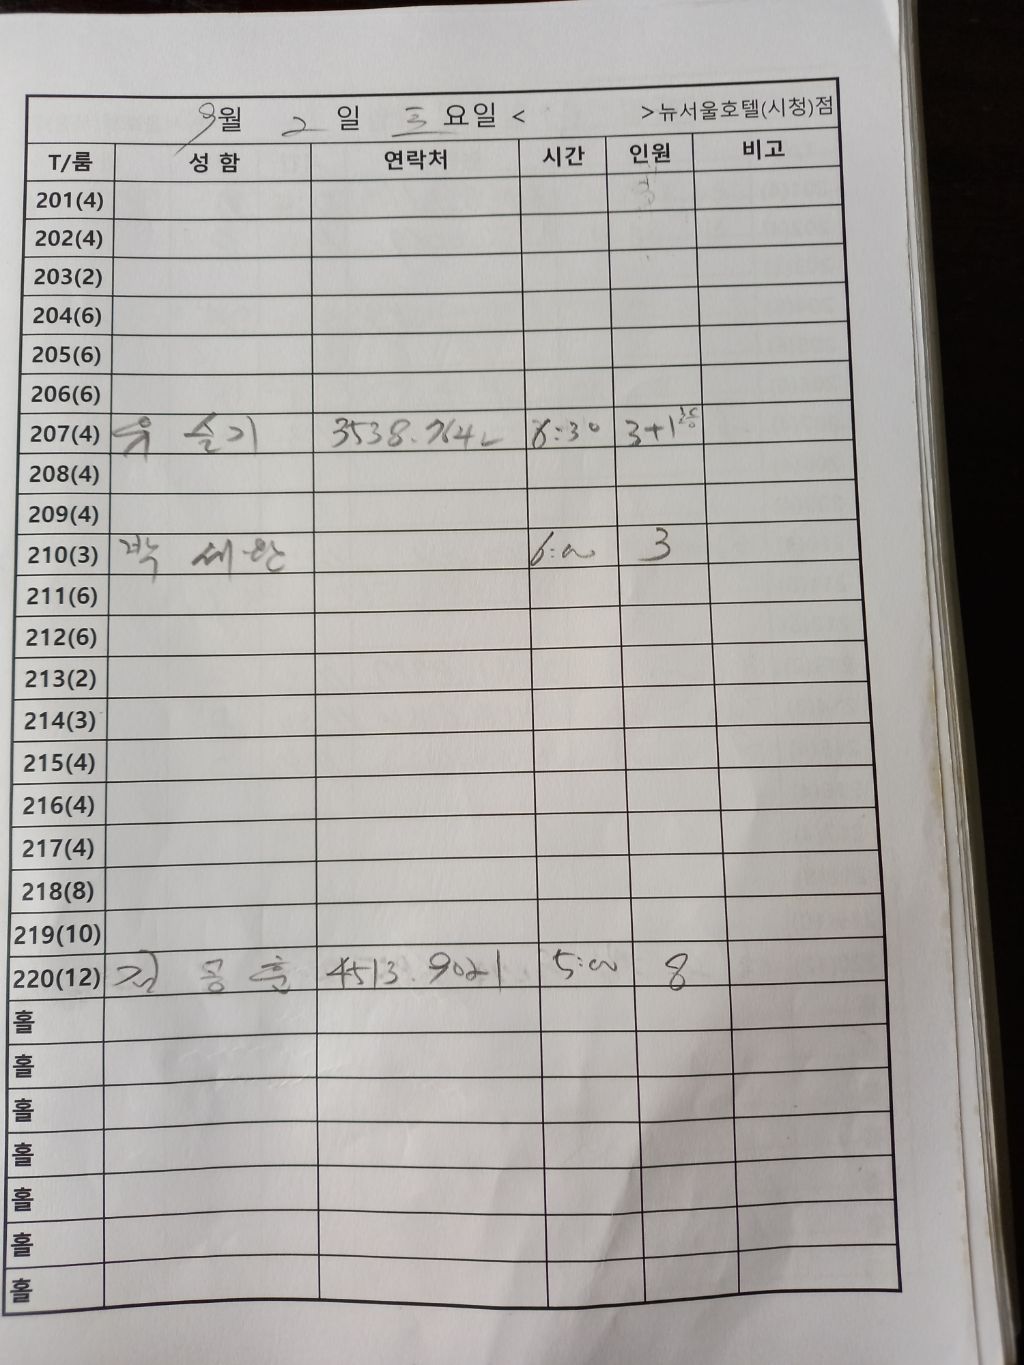 9월 2일 토요일 < >뉴서울호텔(시청)점
T/룸 성 함 연락처 시간 인원 비고
201(4)
202(4)
203(2)
204(6)
205(6)
206(6)
207(4) 유 슬기 3538.7642 :30 3+1
208(4)
209(4)
210(3) 박 세완 6:00 3
211(6)
212(6)
213(2)
214(3)
215(4)
216(4)
217(4)
218(8)
219(10)
220(12) 4513.9021 5:00 8
홀
홀
홀
홀
홀
홀
홀